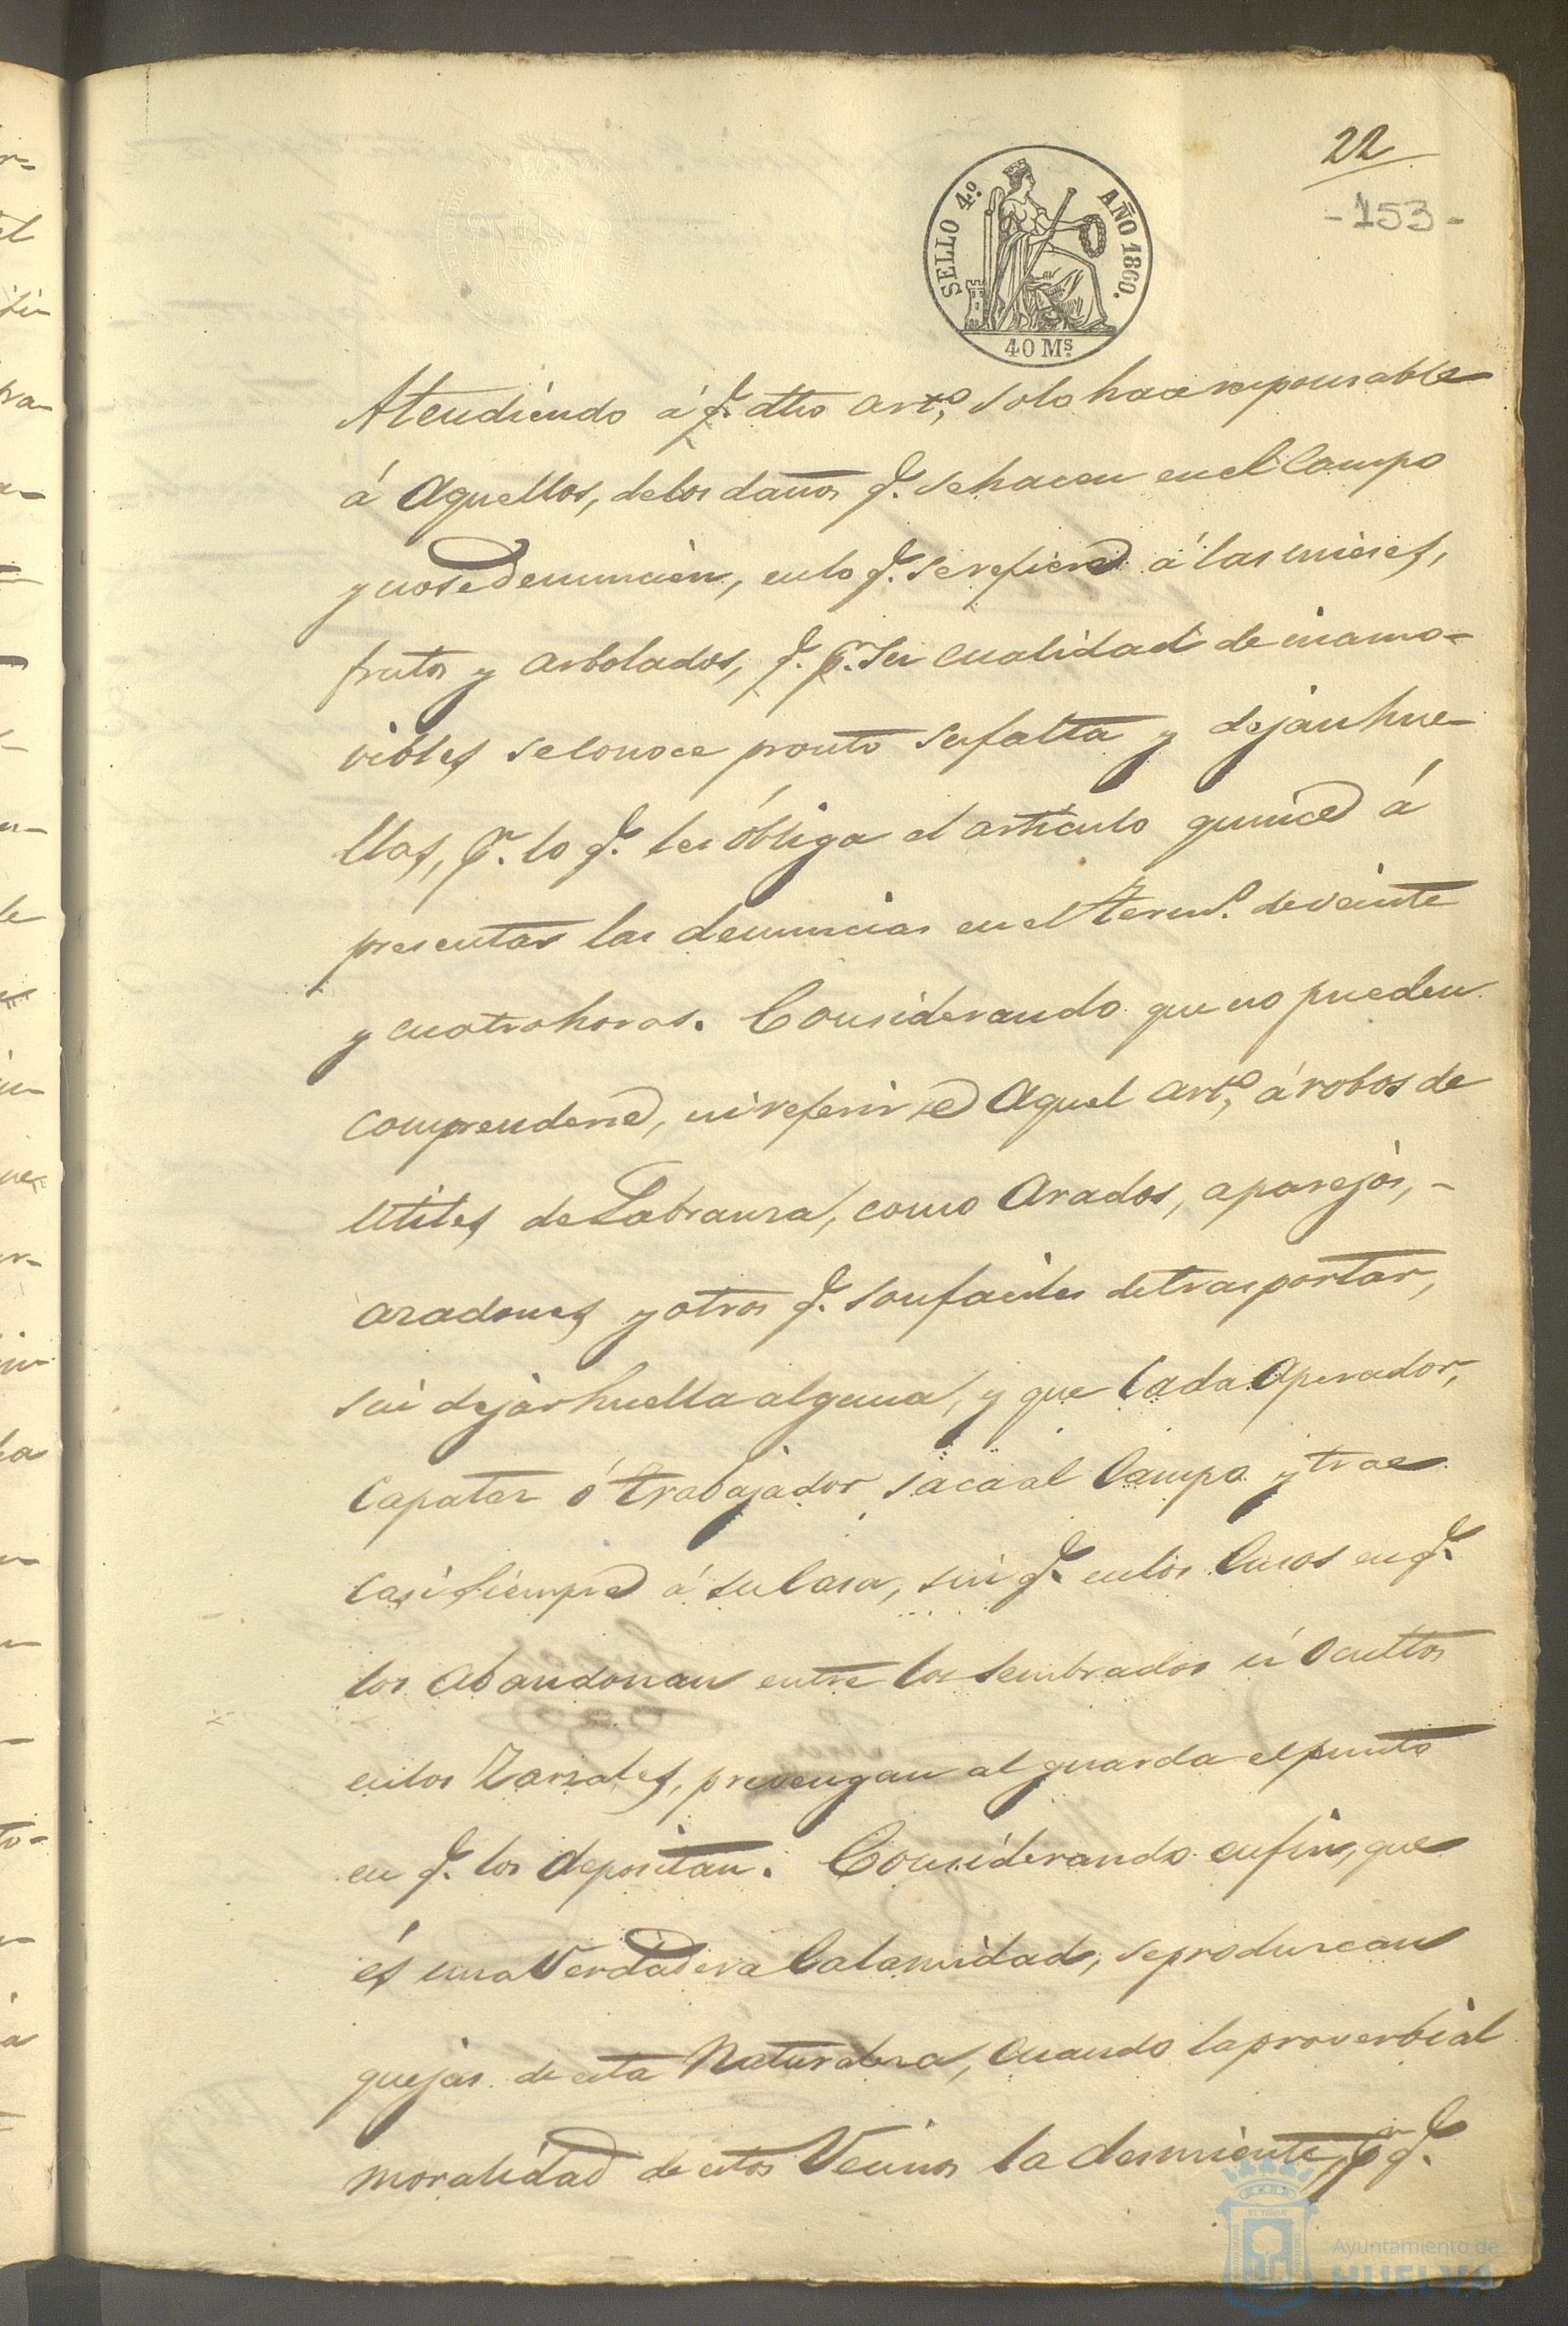 22
-153-
SELLO 4.º AÑO 1860.
40 Ms.
Atendiendo á q.e dho art.º, solo hace responsable
á aquellos, de los daños q.e se hacen en el Campo
y no se denuncien, en lo q.e se refiere á las mieses,
frutos y arbolados, q.e p.r su cualidad de inamo-
vibles se conoce pronto su falta y dejan hue-
llas, p.r lo q.e les obliga el artículo quince á
presentar las denuncias en el term.º de veinte
y cuatro horas. Considerando que no pueden
comprenderse, ni referirse aquel art.º, á robos de
utiles de Labranza, como arados, aparejos, -
azadones y otros q.e son faciles de trasportar,
sin dejar huella alguna, y que Cada aperador,
Capataz ó trabajador saca al Campo y trae
Casi siempre á su Casa, sin q.e en los Casos en q.e
los abandonan entre los sembrados ú Ocultos
en los Zarzales, prevengan al guarda el punto
en q.e los depositan. Considerando en fin, que
és una Verdadera Calamidad, se produzcan
quejas de esta Naturaleza, Cuando la proverbial
moralidad de estos Vecinos la desmiente, p.r q.e
Ayuntamiento de
HUELVA